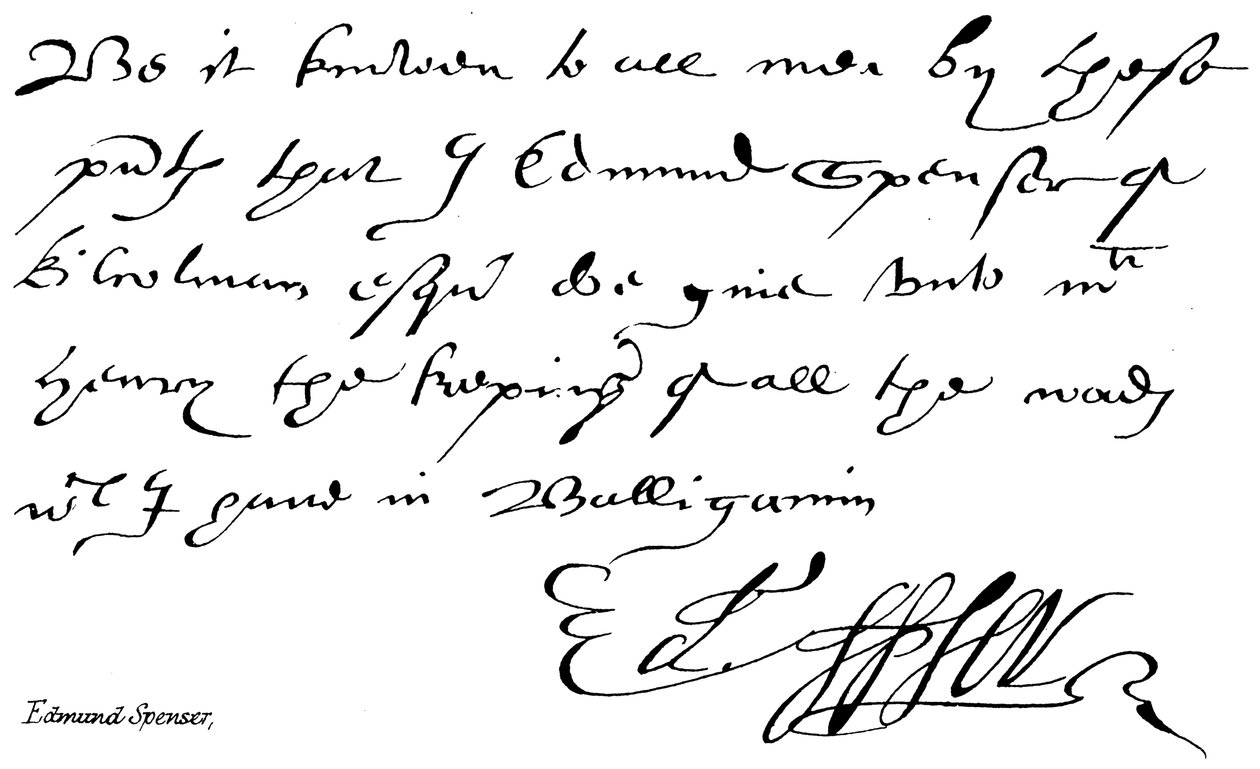 Be it knowen to all men by these
pñts that I Edmund Spenser of
Kilcolman esqr doe giue vnto mr
Henry the keping of all the woods
wch I haue in Balliganim
Ed. Spser
Edmund Spenser,